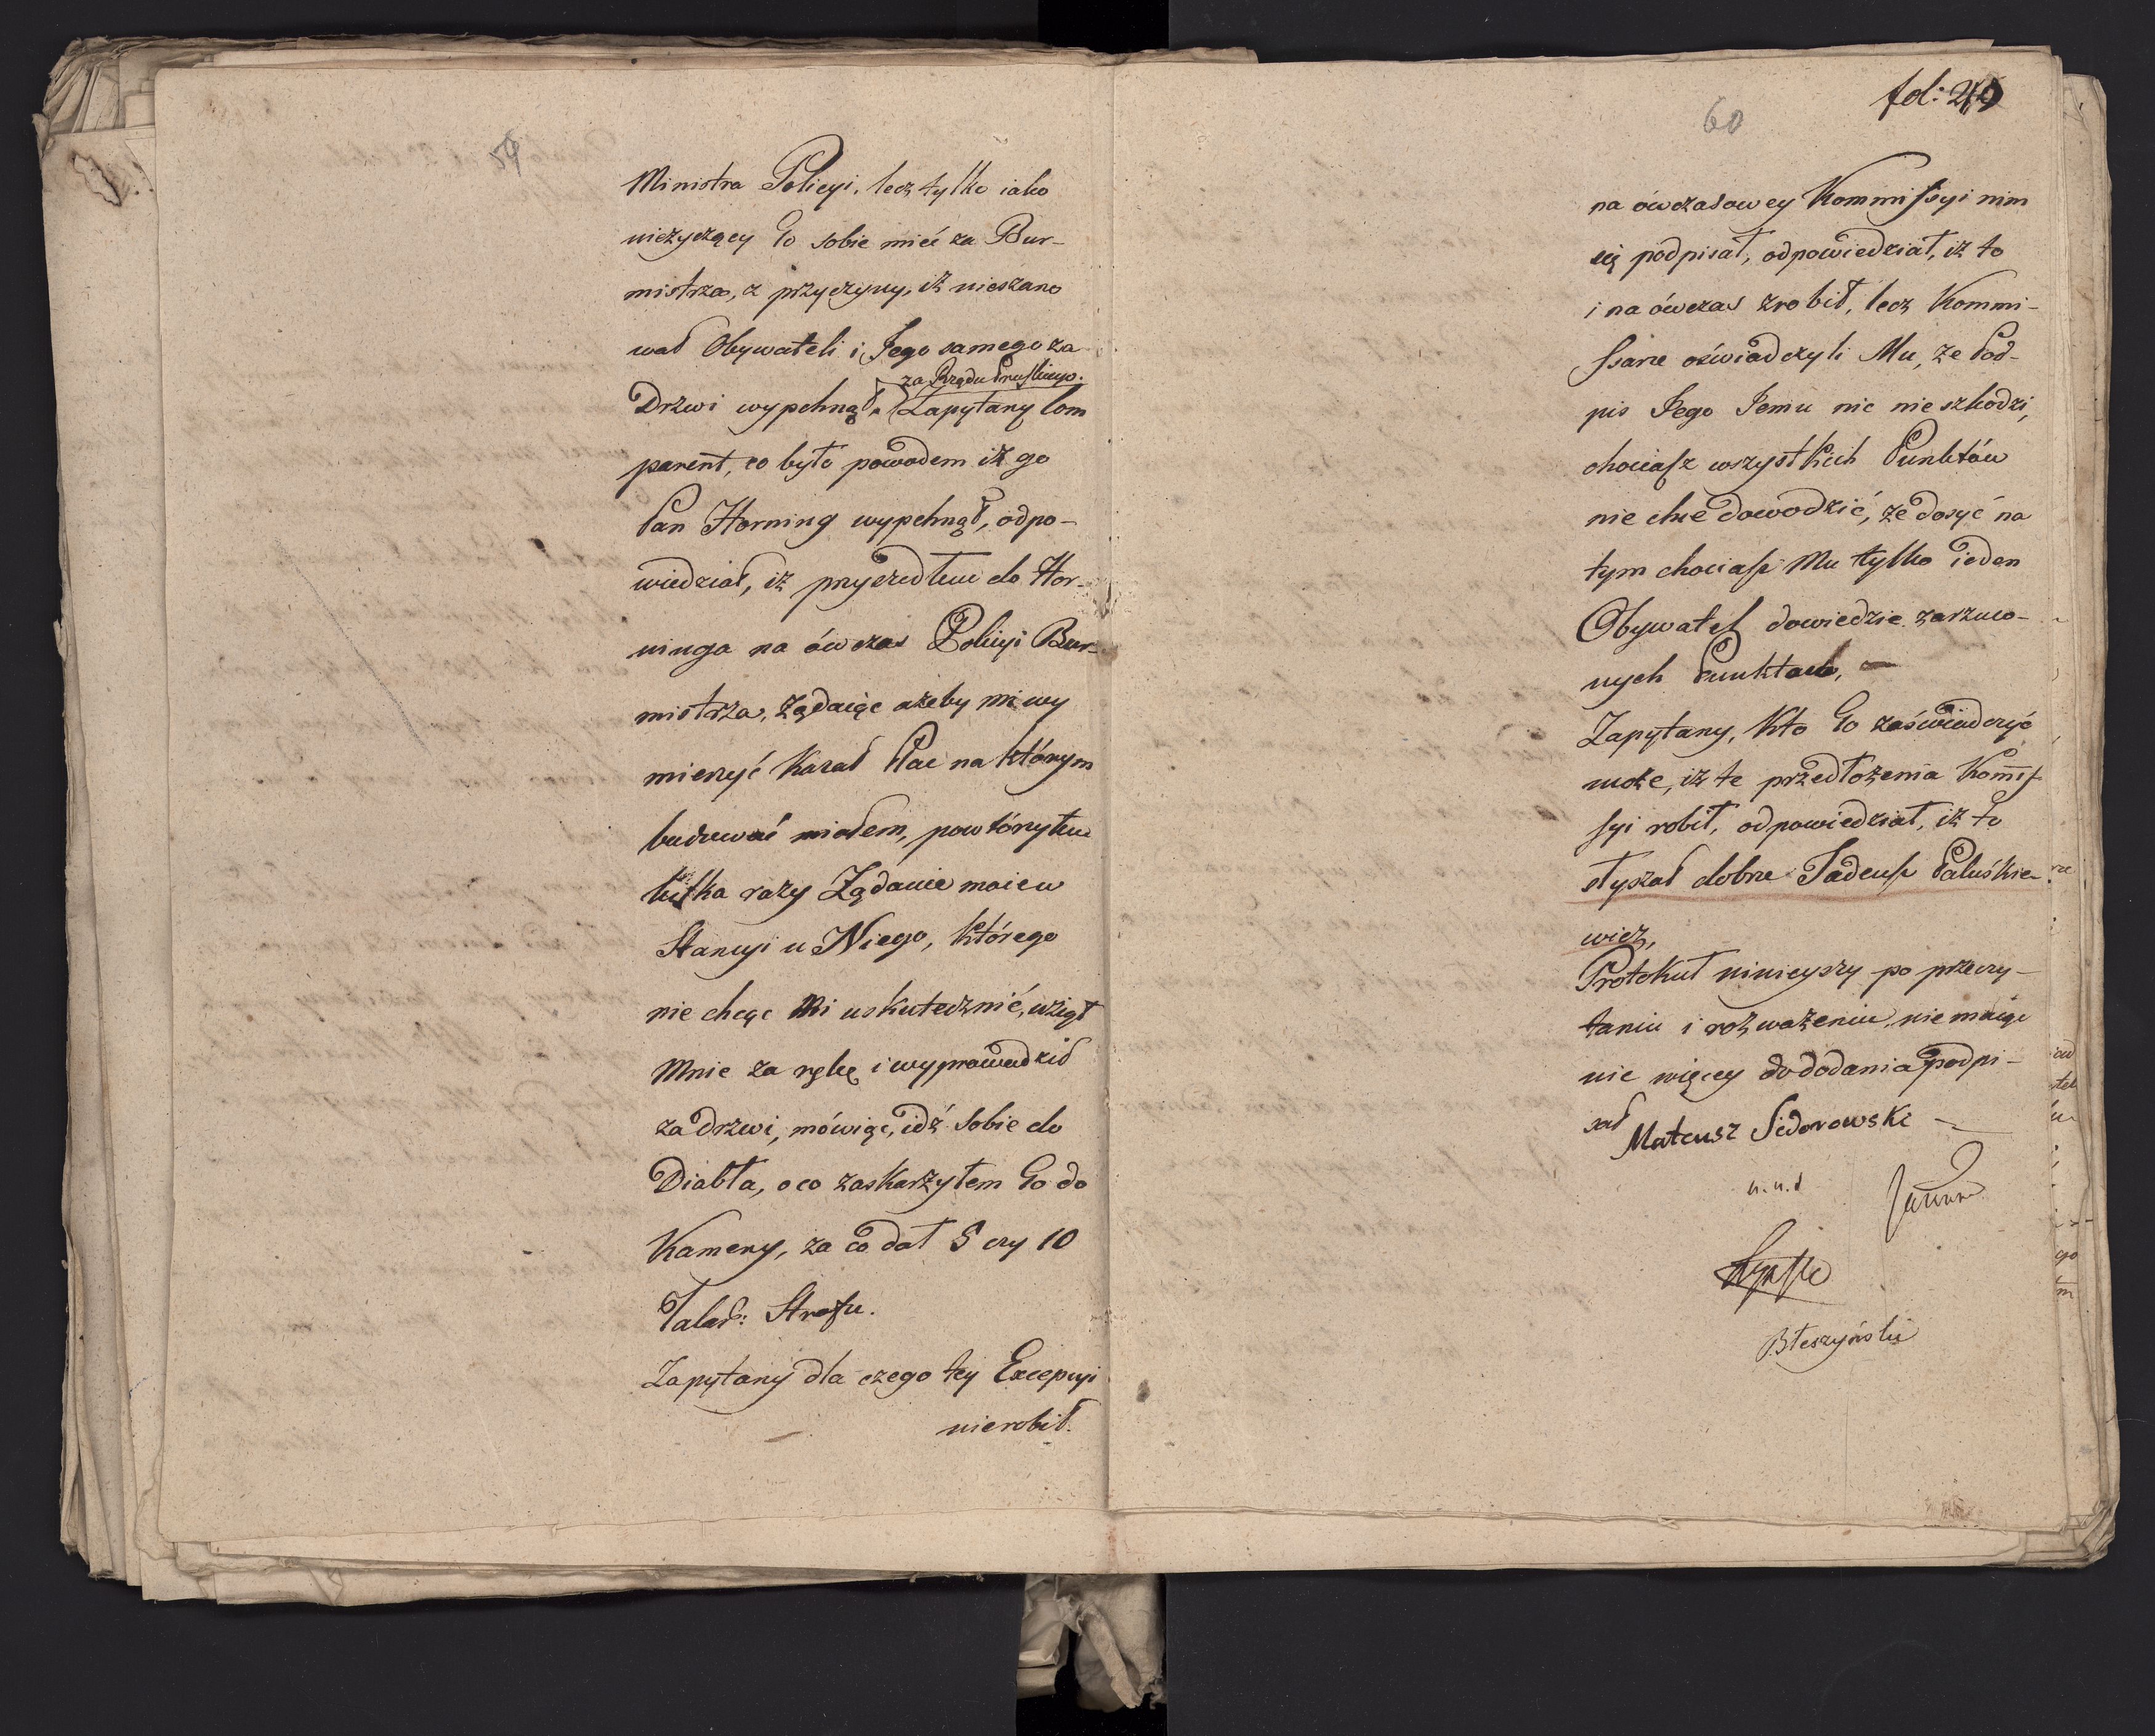 59
Ministra Policyi, lecz tylko iako
nieżyczący Go sobie mieć za Bur-
mistrza, z przyczyny, iż nieszano
wał Obywateli i Jego samego za
za Rządu Pruskiego.
Drzwi wypchnął, Zapytany Com
parent, co było powodem iż go
Pan Horning wypchnął, odpo-
wiedział, iż przyszedłem do Hor-
ninga na ówczas Policyi Bur-
mistrza, żądaiąc ażeby mi wy
mierzyć kazał Plac na którym
budować miałem, powtórzyłem
kilka razy Żądanie moie w
Stancyi u Niego, którego
nie chcąc Mi uskutecznić, wziął
Mnie za rękę i wyprowadził
za drzwi, mówiąc, idź sobie do
Diabła, o co zaskarżyłem Go do
Kamery, za co dał 5 czy 10
Talar: Strofu.
Zapytany dla czego tey Excepcyi
nierobił.
fol: 29
60
na ówczasowey Kommissyi nim
się podpisał, odpowiedział, iż to
i na ówczas zrobił, lecz Kommi-
ssarze oświadczyli Mu, że Pod-
pis Jego Jemu nic nie szkodzi,
chociasz wszystkich Punktów
nie chce dowodzić, że dosyć na
tym chociasz Mu tylko ieden
Obywatel dowiedzie zarzuco-
nych Punktach, —
Zapytany, kto Go zaświadczyć
może, iż te przedłożenia Komis-
syi robił, odpowiedział, iż to
słyszał dobrze Tadeusz Paluśkie-
wicz,
Protokuł ninieyszy po przeczy-
taniu i rozważeniu, nie maiąc
nic więcey do dodania podpi-
sał Mateusz Sidorowski
Błeszyński